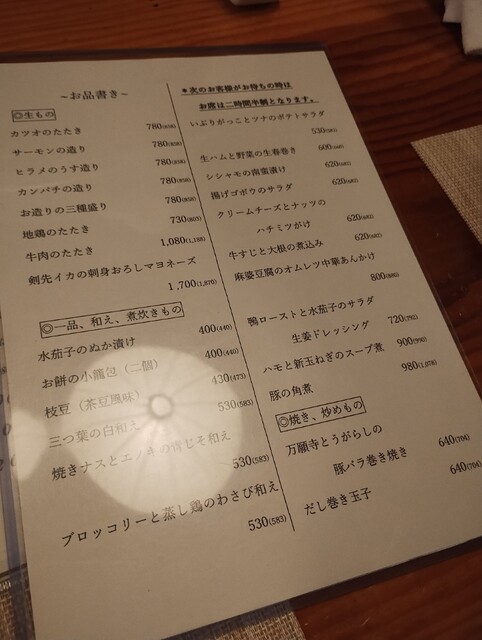 ~お品書き~
◎生もの
カツオのたたき 780(858)
サーモンの造り 780(858)
ヒラメのうす造り 780(858)
カンパチの造り 780(858)
お造りの三種盛り 780(858)
地鶏のたたき 730(803)
牛肉のたたき 1,080(1,188)
剣先イカの刺身おろしマヨネーズ
1,700(1,870)
◎一品、和え、煮炊きもの
水茄子のぬか漬け 400(440)
お餅の小籠包（二個） 400(440)
枝豆（茶豆風味） 430(473)
三つ葉の白和え 530(583)
焼きナスとエノキの青じそ和え
530(583)
ブロッコリーと蒸し鶏のわさび和え
530(583)
*次のお客様がお待ちの時は
お席は二時間半制となります。
いぶりがっことツナのポテトサラダ
530(583)
生ハムと野菜の生春巻き 600(660)
シシャモの南蛮漬け 620(682)
揚げゴボウのサラダ 620(682)
クリームチーズとナッツの
ハチミツがけ 620(682)
牛すじと大根の煮込み 620(682)
麻婆豆腐のオムレツ中華あんかけ
800(880)
鴨ローストと水茄子のサラダ
生姜ドレッシング 720(792)
ハモと新玉ねぎのスープ煮 900(990)
豚の角煮 980(1,078)
◎焼き、炒めもの
万願寺とうがらしの
豚バラ巻き焼き 640(704)
だし巻き玉子 640(704)